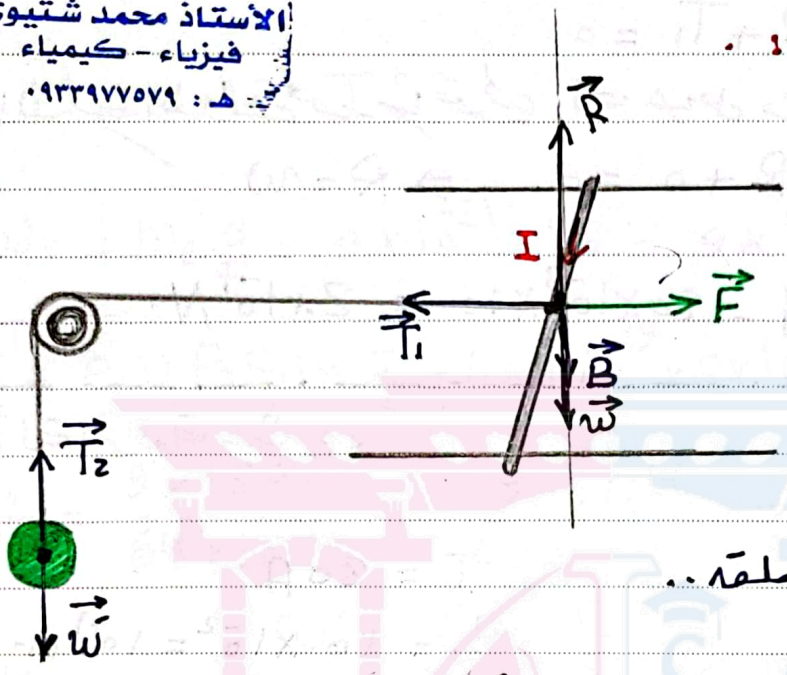 الأستاذ محمد شتيوي
فيزياء - كيمياء
هـ : ٠٩٣٣٩٧٧٥٧٩
R
I
F
T₁
B
W
T₂
W